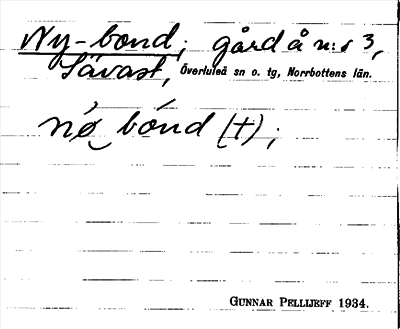 Ny-bond; gård å n:r 3,
Sävast, Överluleå sn o. tg, Norrbottens län.
nø̀ bónd (†);
GUNNAR PELLIJEFF 1934.